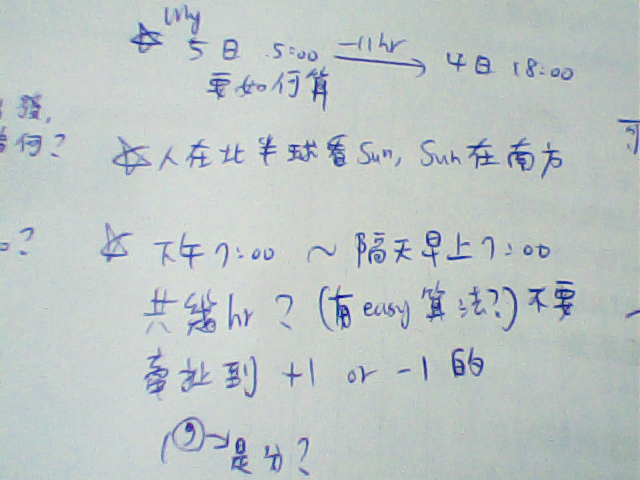 Why
☆ 5日 5:00 -11hr → 4日 18:00
要如何算
發,
何?
☆人在北半球看Sun, Sun在南方
?
☆ 下午7:00 ~ 隔天早上7:00
共幾hr? (有easy算法?)不要
牽扯到 +1 or -1 的
→是分?